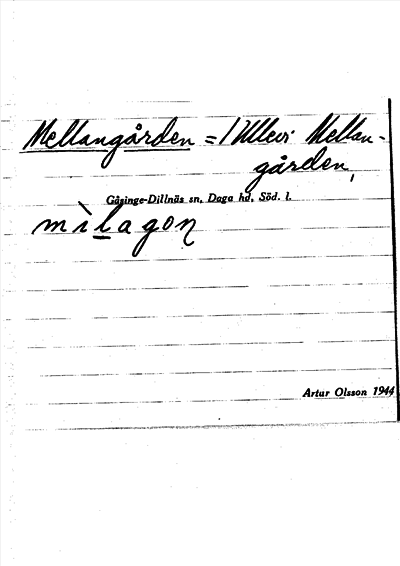 Mellangården = 1 Ullevi Mellan-
gården,
Gåsinge-Dillnäs sn, Daga hd, Söd. l.
mìlagoṇ
Artur Olsson 1944